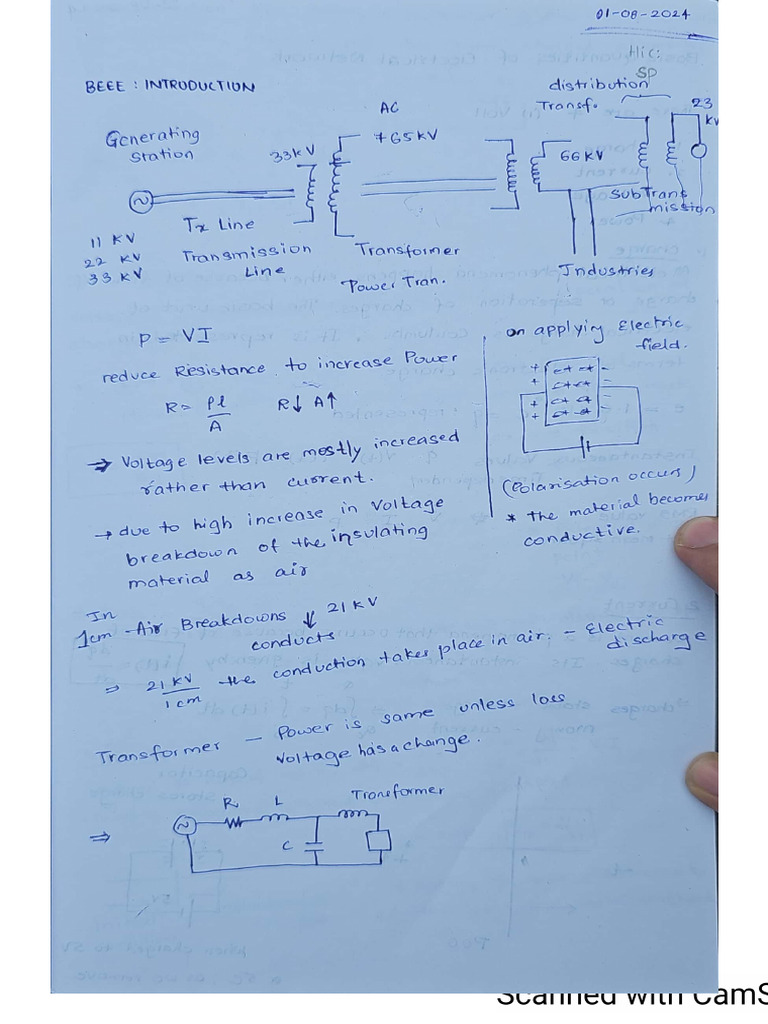 01-08-2024
BEEE : INTRODUCTION
Hic:
SP
distribution
Transf.
23
KV
AC
765 KV
Generating
Station
33KV
66 KV
SubTrans
mission
Tx Line
Transmission
Line
11 KV
22 KV
33 KV
Transformer
Power Tran.
Industries
P = VI
reduce Resistance to increase Power
R = ρl
A
R↓ A↑
→ Voltage levels are mostly increased
rather than current.
→ due to high increase in Voltage
breakdown of the insulating
material as air
on applying Electric
field.
+ + + +
- - - -
(Polarisation occurs)
* The material becomes
conductive.
In
1cm - Air Breakdowns ↓ 21 KV
conducts
⇒ 21 KV
1 cm
the conduction takes place in air. - Electric
discharge
Transformer - Power is same unless loss
Voltage has a change.
⇒
R
L
C
Transformer
Scanned with CamS